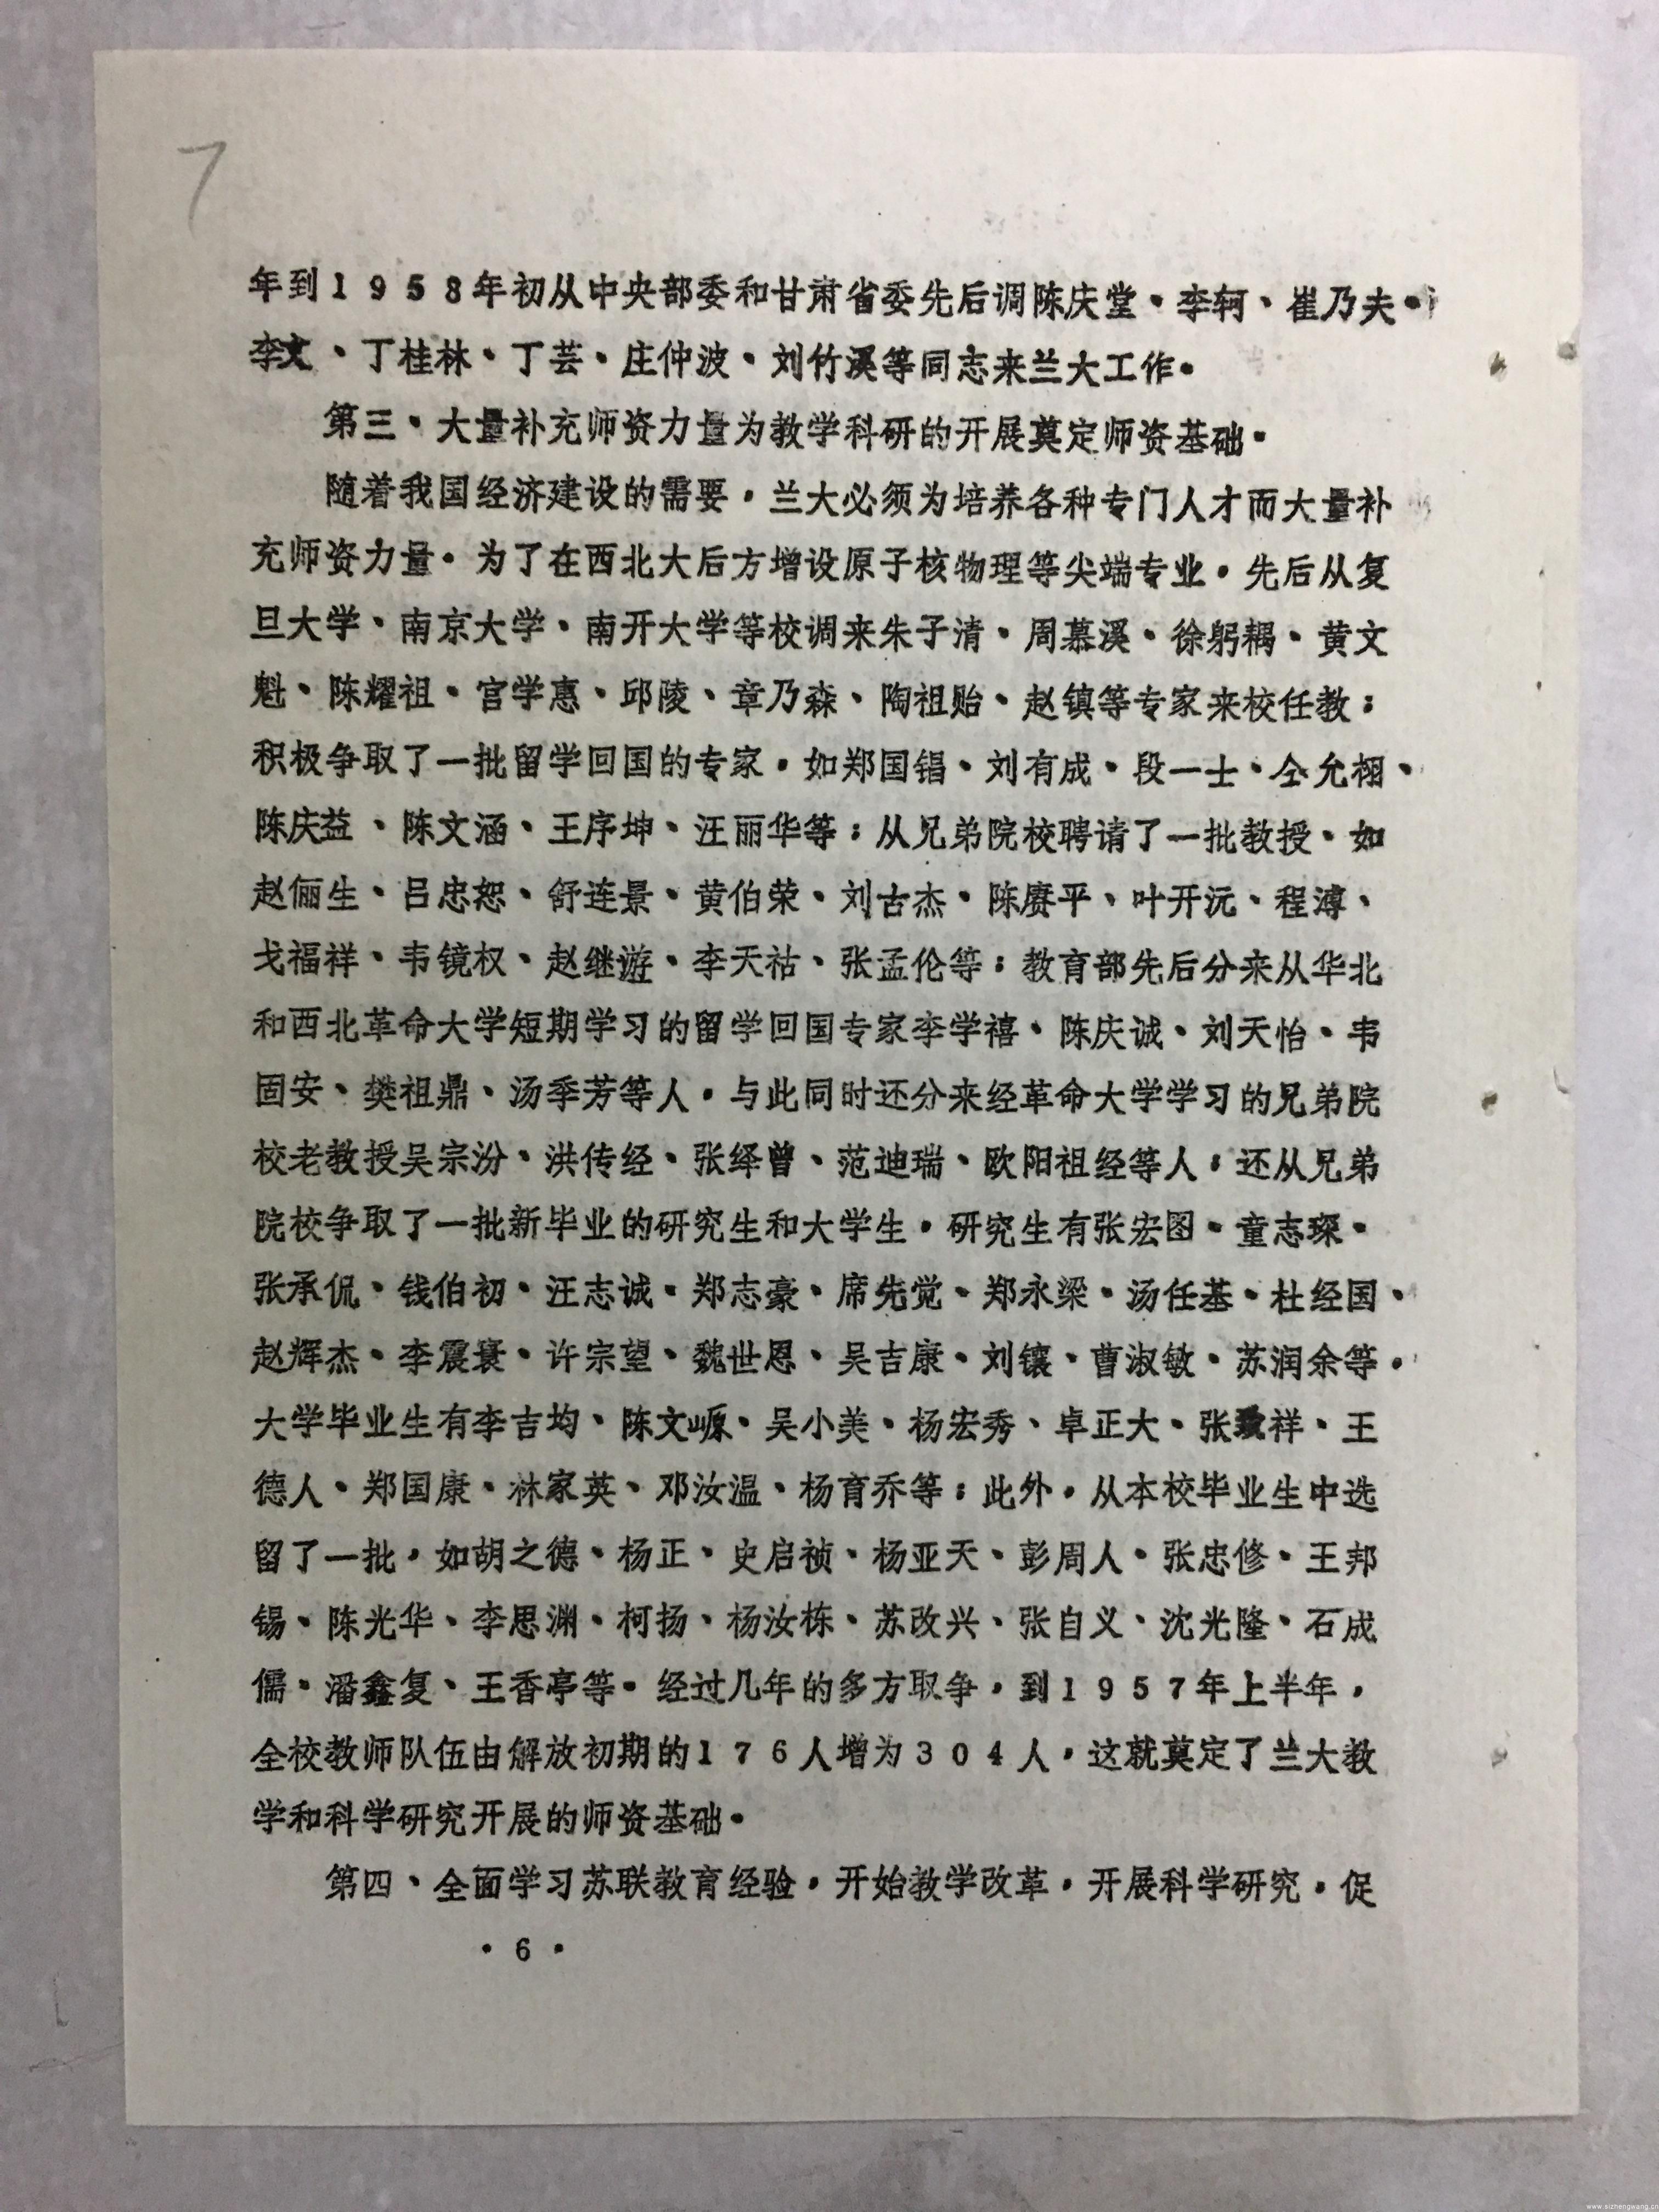 7
年到1958年初从中央部委和甘肃省委先后调陈庆堂、李轲、崔乃夫、
李文、丁桂林、丁芸、庄仲波、刘竹溪等同志来兰大工作。
第三、大量补充师资力量为教学科研的开展奠定师资基础。
随着我国经济建设的需要，兰大必须为培养各种专门人才而大量补
充师资力量。为了在西北大后方增设原子核物理等尖端专业，先后从复
旦大学、南京大学、南开大学等校调来朱子清、周慕溪、徐躬耦、黄文
魁、陈耀祖、宫学惠、邱陵、章乃森、陶祖贻、赵镇等专家来校任教；
积极争取了一批留学回国的专家，如郑国锠、刘有成、段一士、仝允栩、
陈庆益、陈文涵、王序坤、汪丽华等；从兄弟院校聘请了一批教授、如
赵俪生、吕忠恕、舒连景、黄伯荣、刘古杰、陈赓平、叶开沅、程溥、
戈福祥、韦镜权、赵继游、李天祜、张孟伦等；教育部先后分来从华北
和西北革命大学短期学习的留学回国专家李学禧、陈庆诚、刘天怡、韦
固安、樊祖鼎、汤季芳等人，与此同时还分来经革命大学学习的兄弟院
校老教授吴宗汾、洪传经、张绎曾、范迪瑞、欧阳祖经等人，还从兄弟
院校争取了一批新毕业的研究生和大学生，研究生有张宏图、童志琛、
张承侃、钱伯初、汪志诚、郑志豪、席先觉、郑永梁、汤任基、杜经国、
赵辉杰、李震寰、许宗望、魏世恩、吴吉康、刘镶、曹淑敏、苏润余等，
大学毕业生有李吉均、陈文㟲、吴小美、杨宏秀、卓正大、张祥、王
德人、郑国康、林家英、邓汝温、杨育乔等；此外，从本校毕业生中选
留了一批，如胡之德、杨正、史启祯、杨亚天、彭周人、张忠修、王邦
锡、陈光华、李思渊、柯扬、杨汝栋、苏改兴、张自义、沈光隆、石成
儒、潘鑫复、王香亭等。经过几年的多方取争，到1957年上半年，
全校教师队伍由解放初期的176人增为304人，这就奠定了兰大教
学和科学研究开展的师资基础。
第四、全面学习苏联教育经验，开始教学改革，开展科学研究，促
·6·
www.sizhengwang.cn